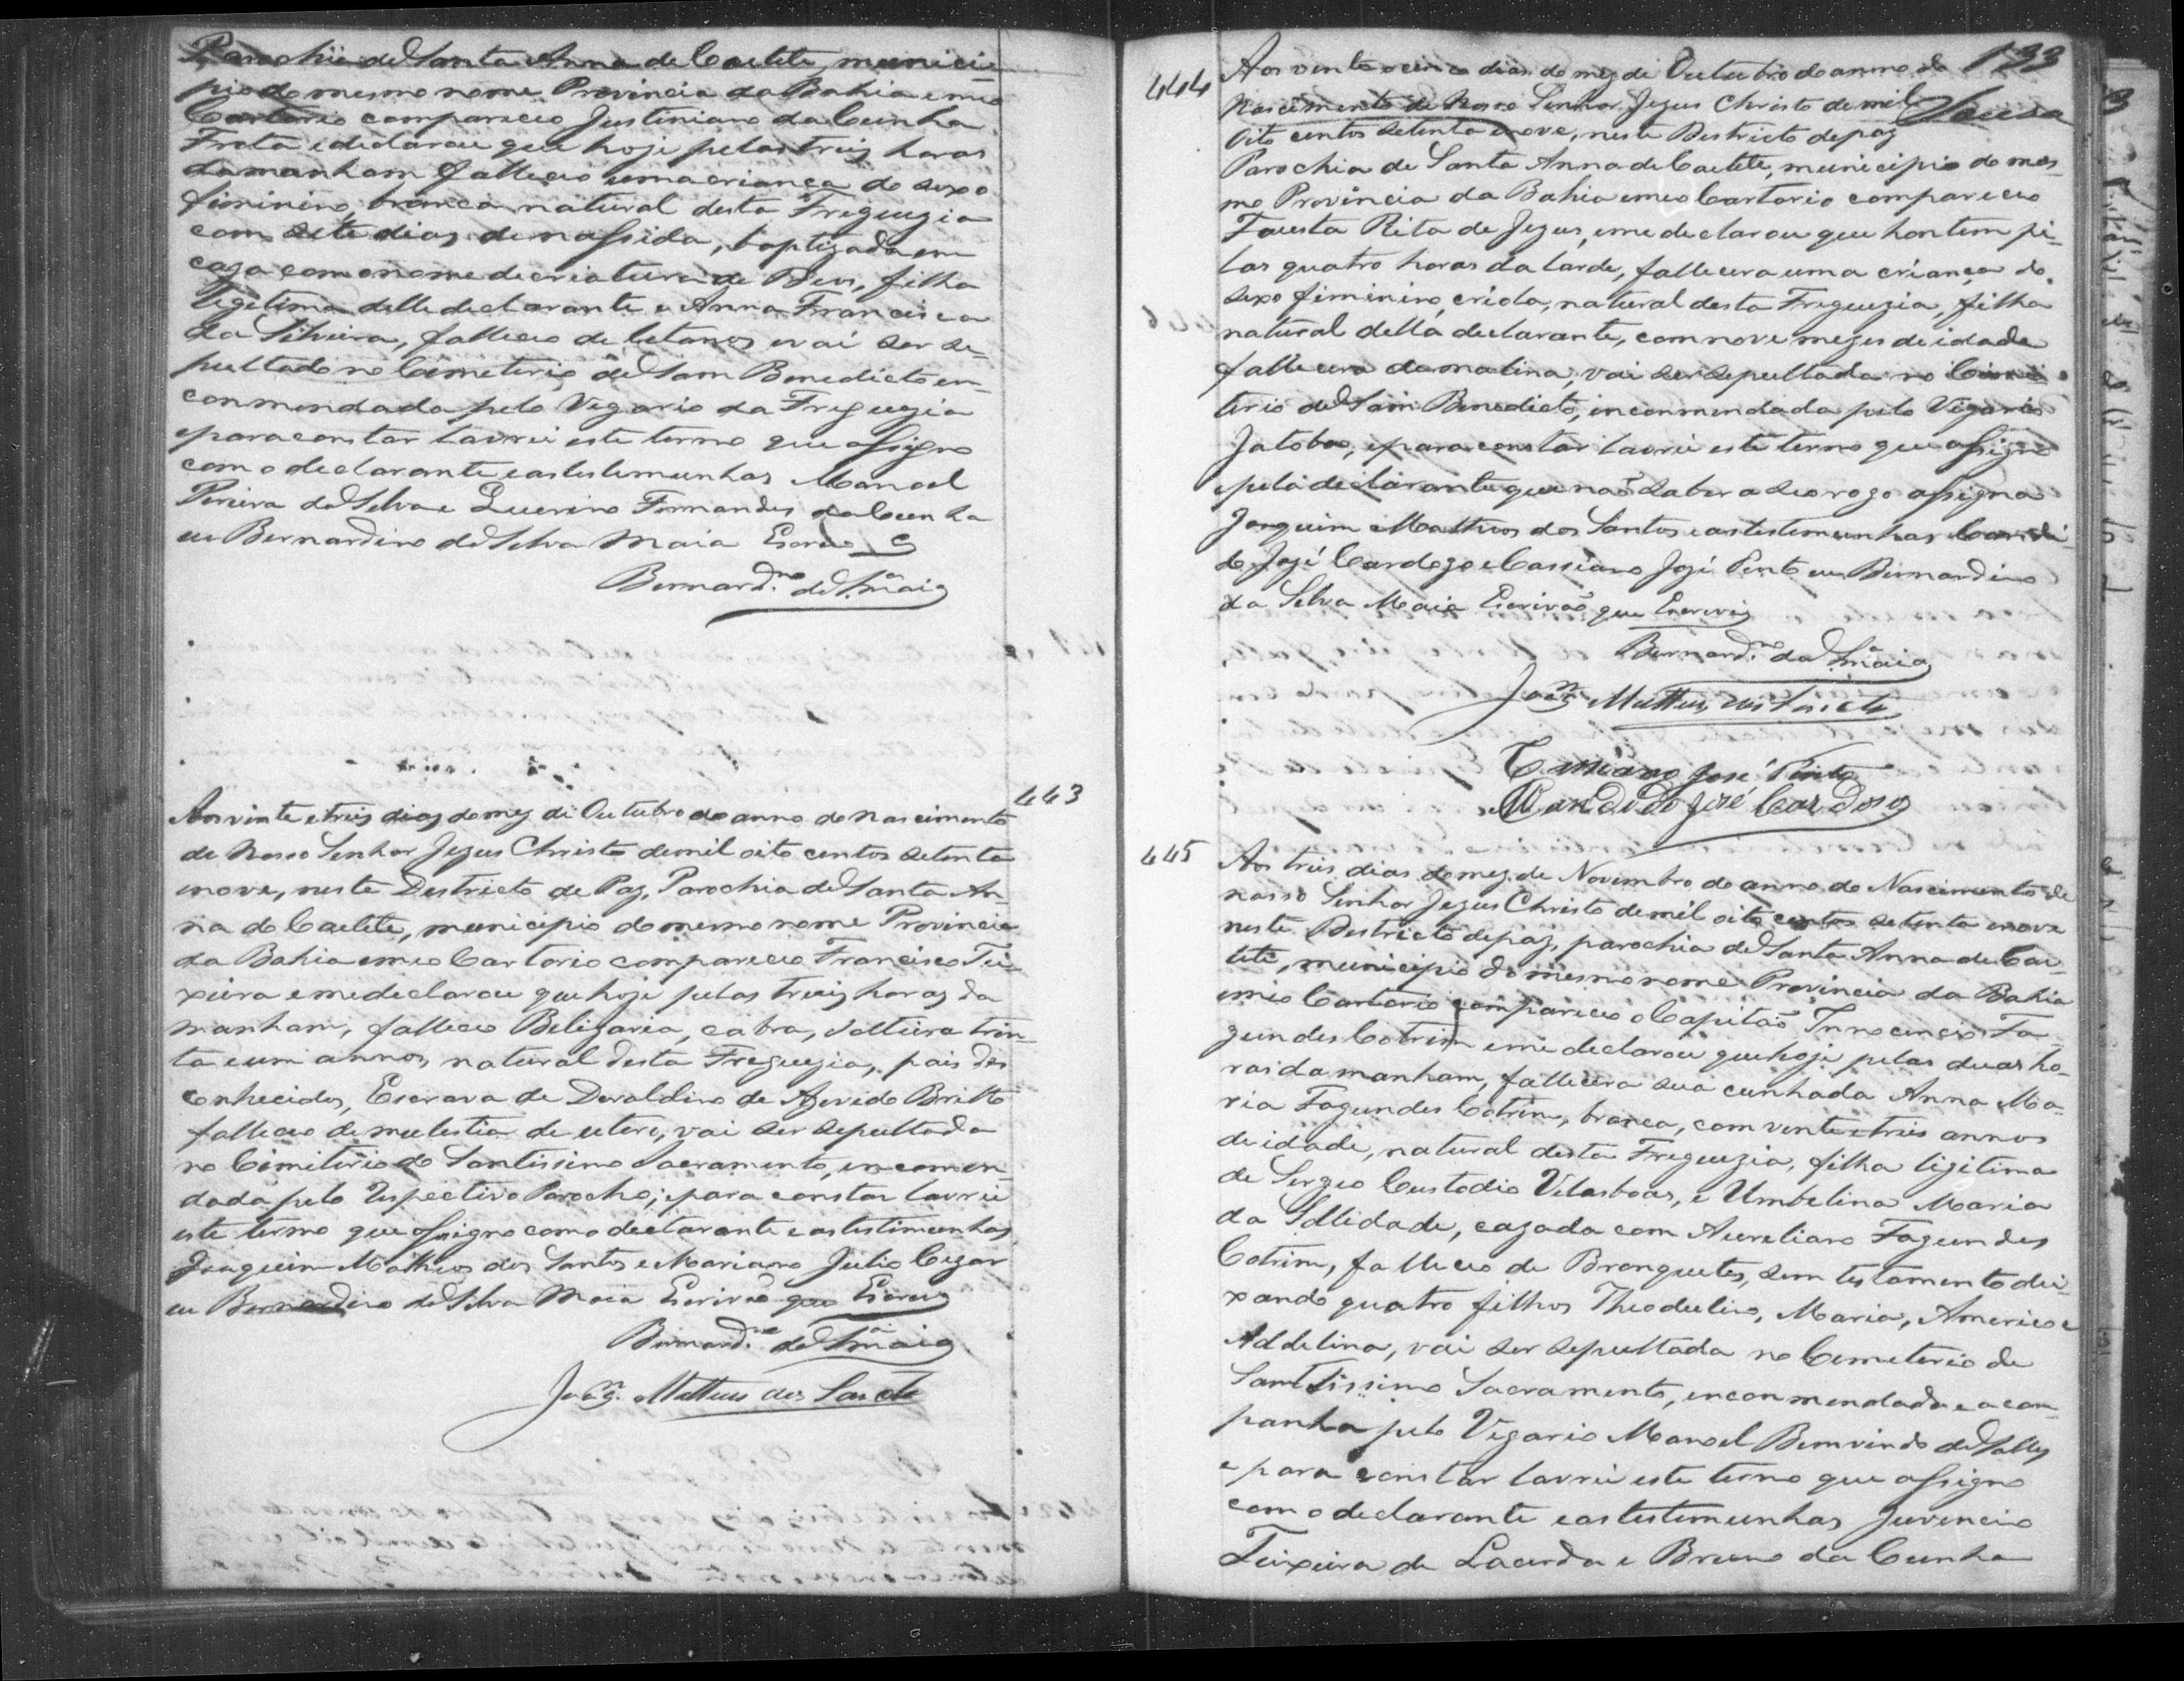 Parochia de Santa Anna de Caetete, munici-
pio do mesmo nome Provincia da Bahia emeo
Cartorio compareceo Justiniano da Cunha
Frota e declarou que hoje pelas treis horas
da manham falleceo uma criança do sexo
fiminino, branca natural desta Freguezia
com sete dias de nassida, baptizada em
caza com o nome de criatura de Deos, filha
legitima delle declarante e Anna Francisca
da Silveira, falleceo de tetanos e vai ser se-
pultado no Cimeterio de Sam Benedicto en-
conmendada pelo Vigario da Freguezia
e para constar lavrei este termo que assigno
com o declarante e as testemunhas Manoel
Pereira da Silva e Querino Fernandes da Cunha
eu Bernardino da Silva Maia Escrivão
Bernard.no da S.a Maia
443
Aos vinte e treis dias do mez de Outubro do anno do nascimento
de Nosso Senhor Jezus Christo de mil oito centos setenta
e nove, neste Destricto de Paz, Parochia de Santa An-
na de Caetete, municipio do mesmo nome Provincia
da Bahia emeo Cartorio compareceo Francisco Tei-
xeira e me declarou que hoje pelas treis horas da
manham, falleceo Beligaria, cabra, solteira trin-
ta e um annos, natural desta Freguezia, pais des
conhecidos, Escrava de Deraldino de Azevedo Britto
falleceo de mulestia de utero, vai ser sepultada
no Cimiterio do Santissimo Sacramento, encomen-
dada pelo Respectivo Parocho; e para constar lavrei
este termo que assigno com o declarante e as testimunhas
Joaquim Matheos dos Santos e Mariano Julio Cezar
eu Bernardino da Silva Maia Escrivão que Escrevi
Bernard.no da S.a Maia
Joaq.m Matteus dos Santos
133
Sousa
444
Aos vinte e cinco dias do mez de Outubro do anno do
Nascimento de Nosso Senhor Jezus Christo de mil
Oito centos setenta e nove, neste Destricto de paz
Parochia de Santa Anna de Caetete, municipio do mes-
mo Provincia da Bahia emeo Cartorio compareceo
Fausta Rita de Jezus, e me declarou que hontem pe-
las quatro horas da tarde, fallecera uma criança do
sexo fiminino, criola, natural desta Freguezia, filha
natural della declarante, com nove mezes de idade
fallecera damalina, vai ser sepultada no Cimi-
terio de Sam Benedicto, inconmendada pelo Vigario
Jatoba, e para constar lavrei este termo que assigno
e pela declarante que não saber a seo rogo assigna
Joaquim Matheos dos Santos e as testemunhas Candi-
do José Cardozo e Cassiano José Pinto eu Bernardino
da Silva Maia Escrivão que Escrevi
Bernard.no da S.a Maia
Joaq.m Matteus dos Santos
Cassiano José Pinto
Candido José Cardoso
445
Aos treis dias do mez de Novembro do anno do Nascimento de
nosso Senhor Jezus Christo de mil oito centos setenta e nove
neste Destricto de paz, parochia de Santa Anna de Cae-
tete, municipio do mesmo nome Provincia da Bahia
emeo Cartorio compareceo o Capitão Innocencio Fa-
gundes Cotrim e me declarou que hoje pelas duas ho-
ras da manham, fallecera sua cunhada Anna Ma-
ria Fagundes Cotrim, branca, com vinte e treis annos
de idade, natural desta Freguezia, filha ligitima
de Sergeo Custodio Vilasboas, e Umbelina Maria
da Sollidade, cazada com Aureliano Fagundes
Cotrim, falleceo de Bronquetes, sem testamento dei-
xando quatro filhos Theodulino, Maria, Americo e
Addelina, vai ser sepultada no Cemeterio do
Santissimo Sacramento, enconmendada e acon-
panha pelo Vigario Manoel Bemvindo de Salles
e para constar lavrei este termo que assigno
com o declarante e as testemunhas Juvencio
Teixeira de Lacerda e Bruno da Cunha